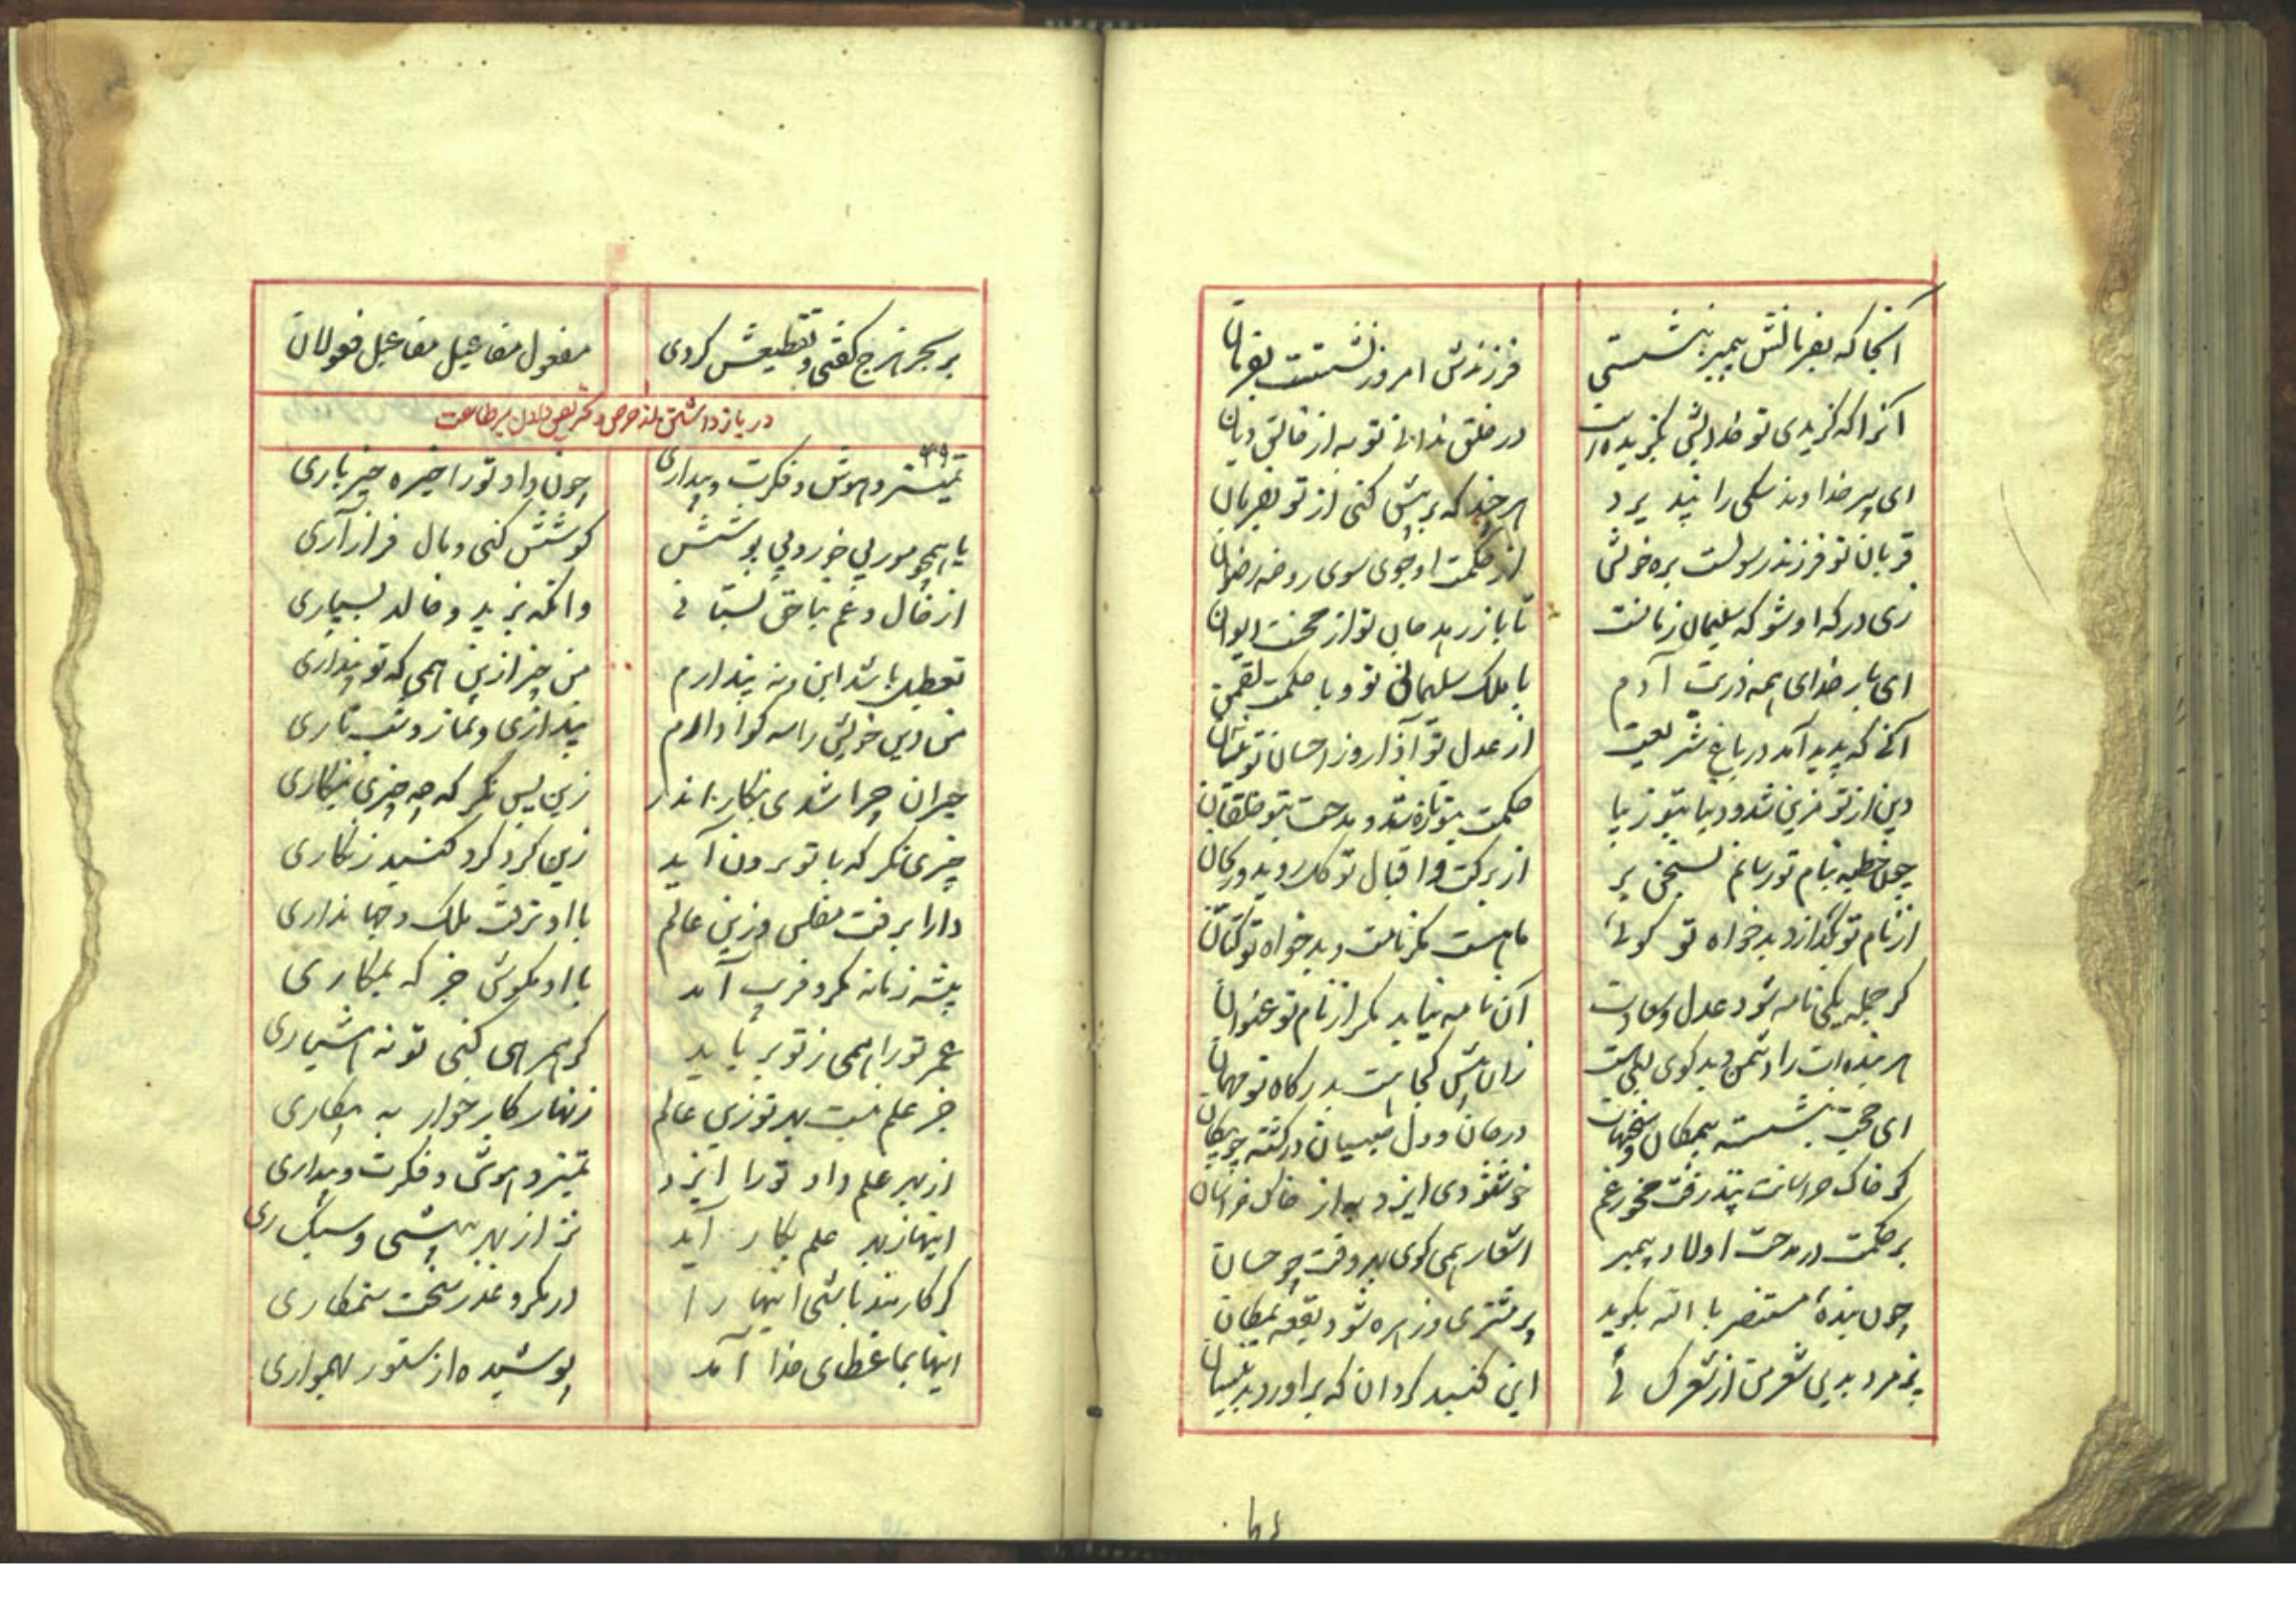 آنجا که بفرمانش پیمبر بنشستی فرزندش امروز نشستست بفرمان
آنرا که گزیدی تو خدایش بگزیده است در خلق ندانی تو به از خالق دیان
ای پیر خداوند سکی را نپذیرد هر چند که بریش کنی از تو بفرمان
قربان تو فرزند رسولست بره خویش از حکمت او جوی سوی روضه رضوان
زی درگه او شو که سلیمان زمانست تا باز رهد جان تو از محنت دیوان
ای بار خدای همه ذریت آدم با ملک سلیمانی تو و با حکمت لقمن
آنی که پدید آمد در باغ شریعت از عدل تو آذار وز احسان تو نیسان
دین از تو مزین شد و دنیا بتو زیبا حکمت بتو تازه شد و بدعت بتو خلقان
چون خطبه بنام تو رسانم بسخن بر از برکت و اقبال تو
از نام تو بگدازد بدخواه تو گوئی ماهست مگر نامت و بدخواه تو کتان
گر جمله یکی نامه شود عدل و سعادت آن نامه نیابد مگر از نام تو عنوان
هر بنده‌ات را دشمن و بدگوی زان پیش کجا بدرگاه تو مهمان
ای حجت بنشسته بیمگان و سخنهات در جان و دل در گشته چو پیکان
گر خاک خراسانت نپذرفت مخور غم خوشنودی ایزد به از خاک خراسان
بر حکمت در مدحت اولاد پیمبر اشعار همی گوی بهر وقت چو حسان
چون بنده مستنصر بالله بگوید پر مشتری و زهره شود بقعه یمکان
پژمرد بدین شعر من از شعرک این گنبد گردان که برآورد بدینسان
بر بحر هزج گفتی و تقطیعش کردی مفعول مفاعیل مفاعیل فعولان
در باز داشتن از حرص و تحریص بر طاعت
۴۹
تمییز و هوش و فکرت و بیداری چون داد تو را خیره خیر باری
یا همچو مور بی خور و بی پوشش کوشش کنی و مال فراز آری
از خال و عم بناحق بستانی وانگه بزید و خالد بسپاری
تعطیل باشد این و نه پندارم من جز ازین همی که تو پنداری
من دین خویش را سه گوا دارم پنداری و نماز و شب تاری
حیران چرا شدی بنگار اندر زین پس نگر که چه چیزی بنگاری
چیزی نگر که با تو برون آید زین گرد گرد گنبد زنگاری
دارا برفت مفلس وزین عالم با او نرفت ملک و جهانداری
پیشه زمانه مکر و فریب آمد با او مکوش جز که بمکاری
عمر تو را همی ز تو برباید گر همرهی کنی تو نه هشیاری
جز علم نیست بهر تو زین عالم زنهار کار خوار به مکاری
از بهر علم داد تو را ایزد تمییز و هوش و فکرت و بیداری
اینها ز بهر علم بکار آید نز از بهر بیشی و سبکساری
گر کاربند باشی اینها را در مکر و غدر سخت ستمکاری
اینها بما عطای خدا آمد پوشیده از ستور بهمواری